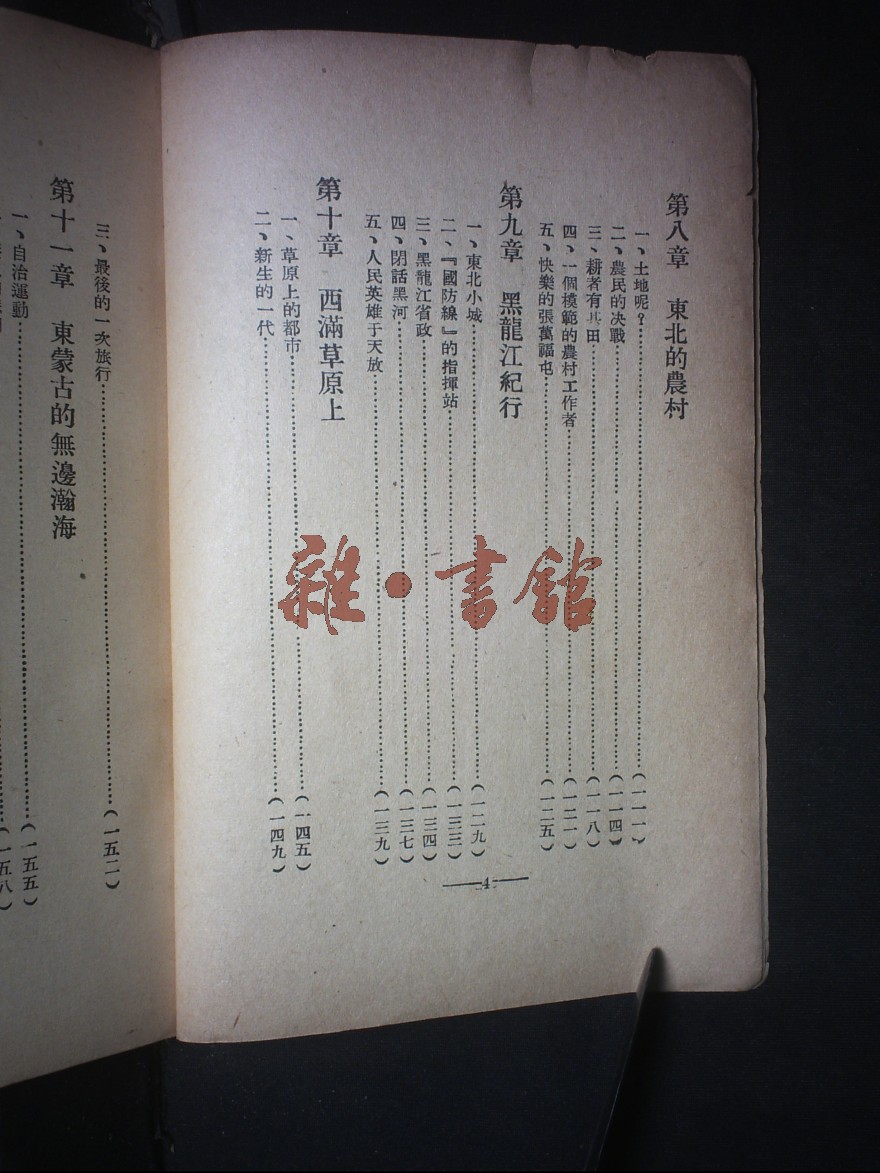 第八章　東北的農村
一、土地呢？……(一一一)
二、農民的决戰……(一一四)
三、耕者有其田……(一一八)
四、一個模範的農村工作者……(一二一)
五、快樂的張萬福屯……(一二五)
第九章　黑龍江紀行
一、東北小城……(一二九)
二、『國防線』的指揮站……(一三三)
三、黑龍江省政……(一三四)
四、閉話黑河……(一三七)
五、人民英雄于天放……(一三九)
第十章　西滿草原上
一、草原上的都市……(一四五)
二、新生的一代……(一四九)
—4—
三、最後的一次旅行……(一五二)
第十一章　東蒙古的無邊瀚海
一、自治運動……(一五五)
(一五八)
雜·書館